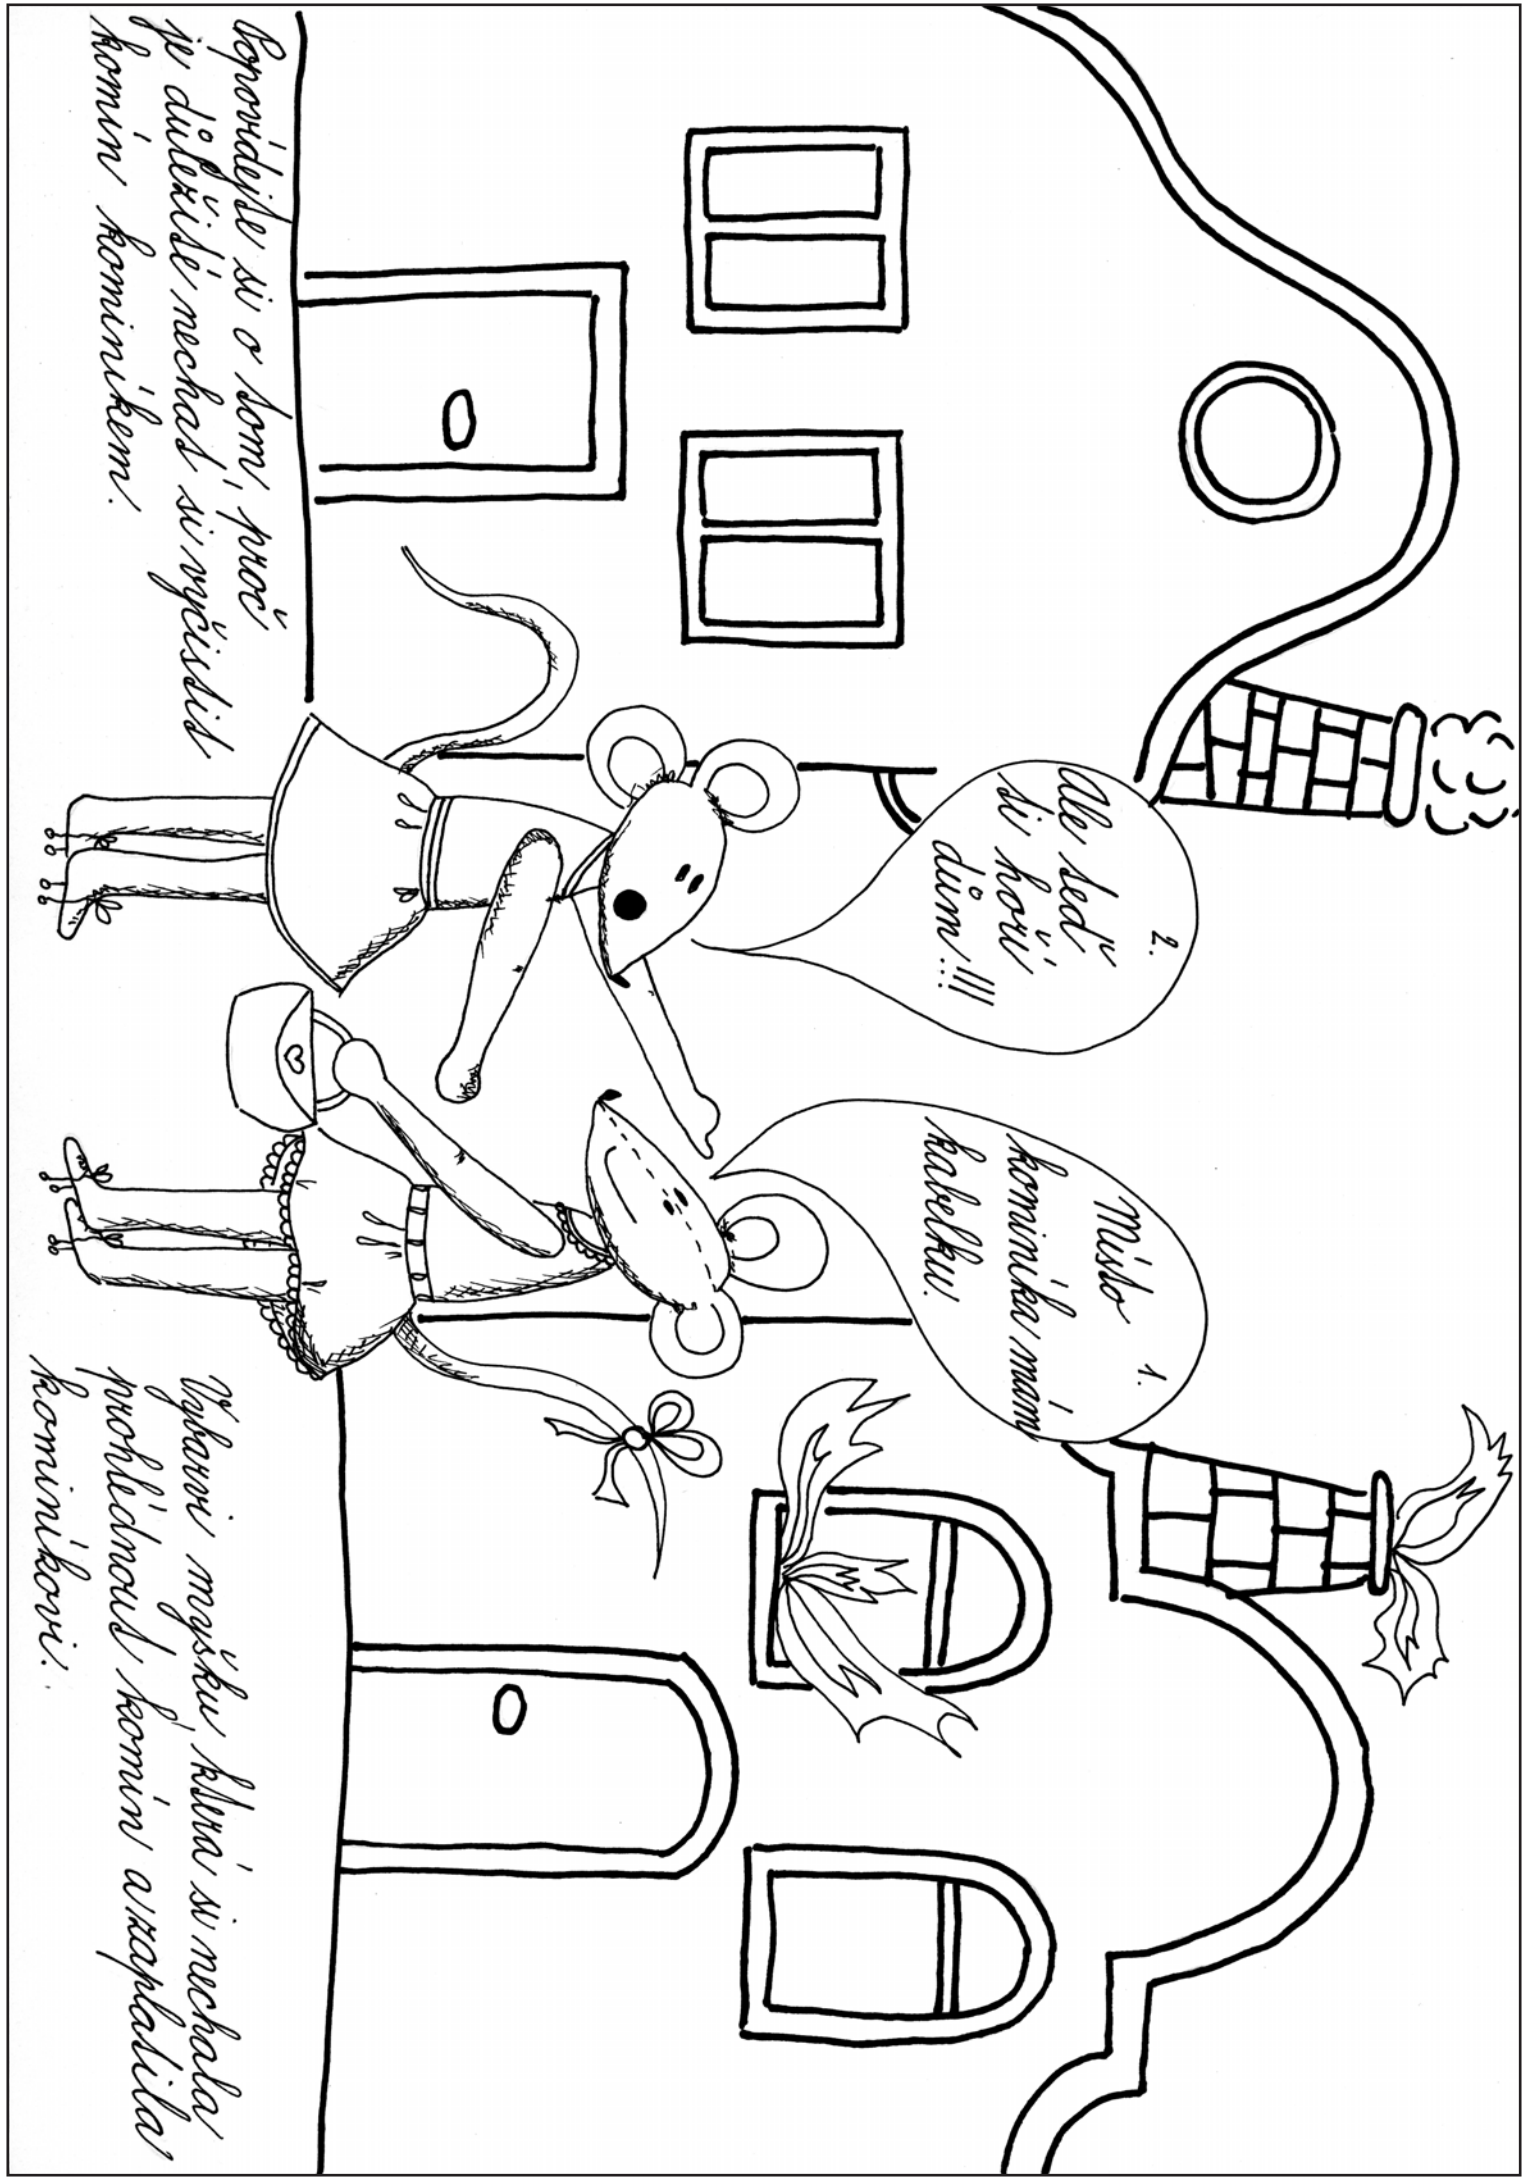 1.
Místo
kominíka mám
kabelku.
2.
Ale teď
ti hoří
dům!!!
Popovídejte si o tom, proč
je důležité nechat si vyčistit
komín kominíkem.
Vybarvi myšku, která si nechala
prohlédnout komín a zaplatila
kominíkovi.